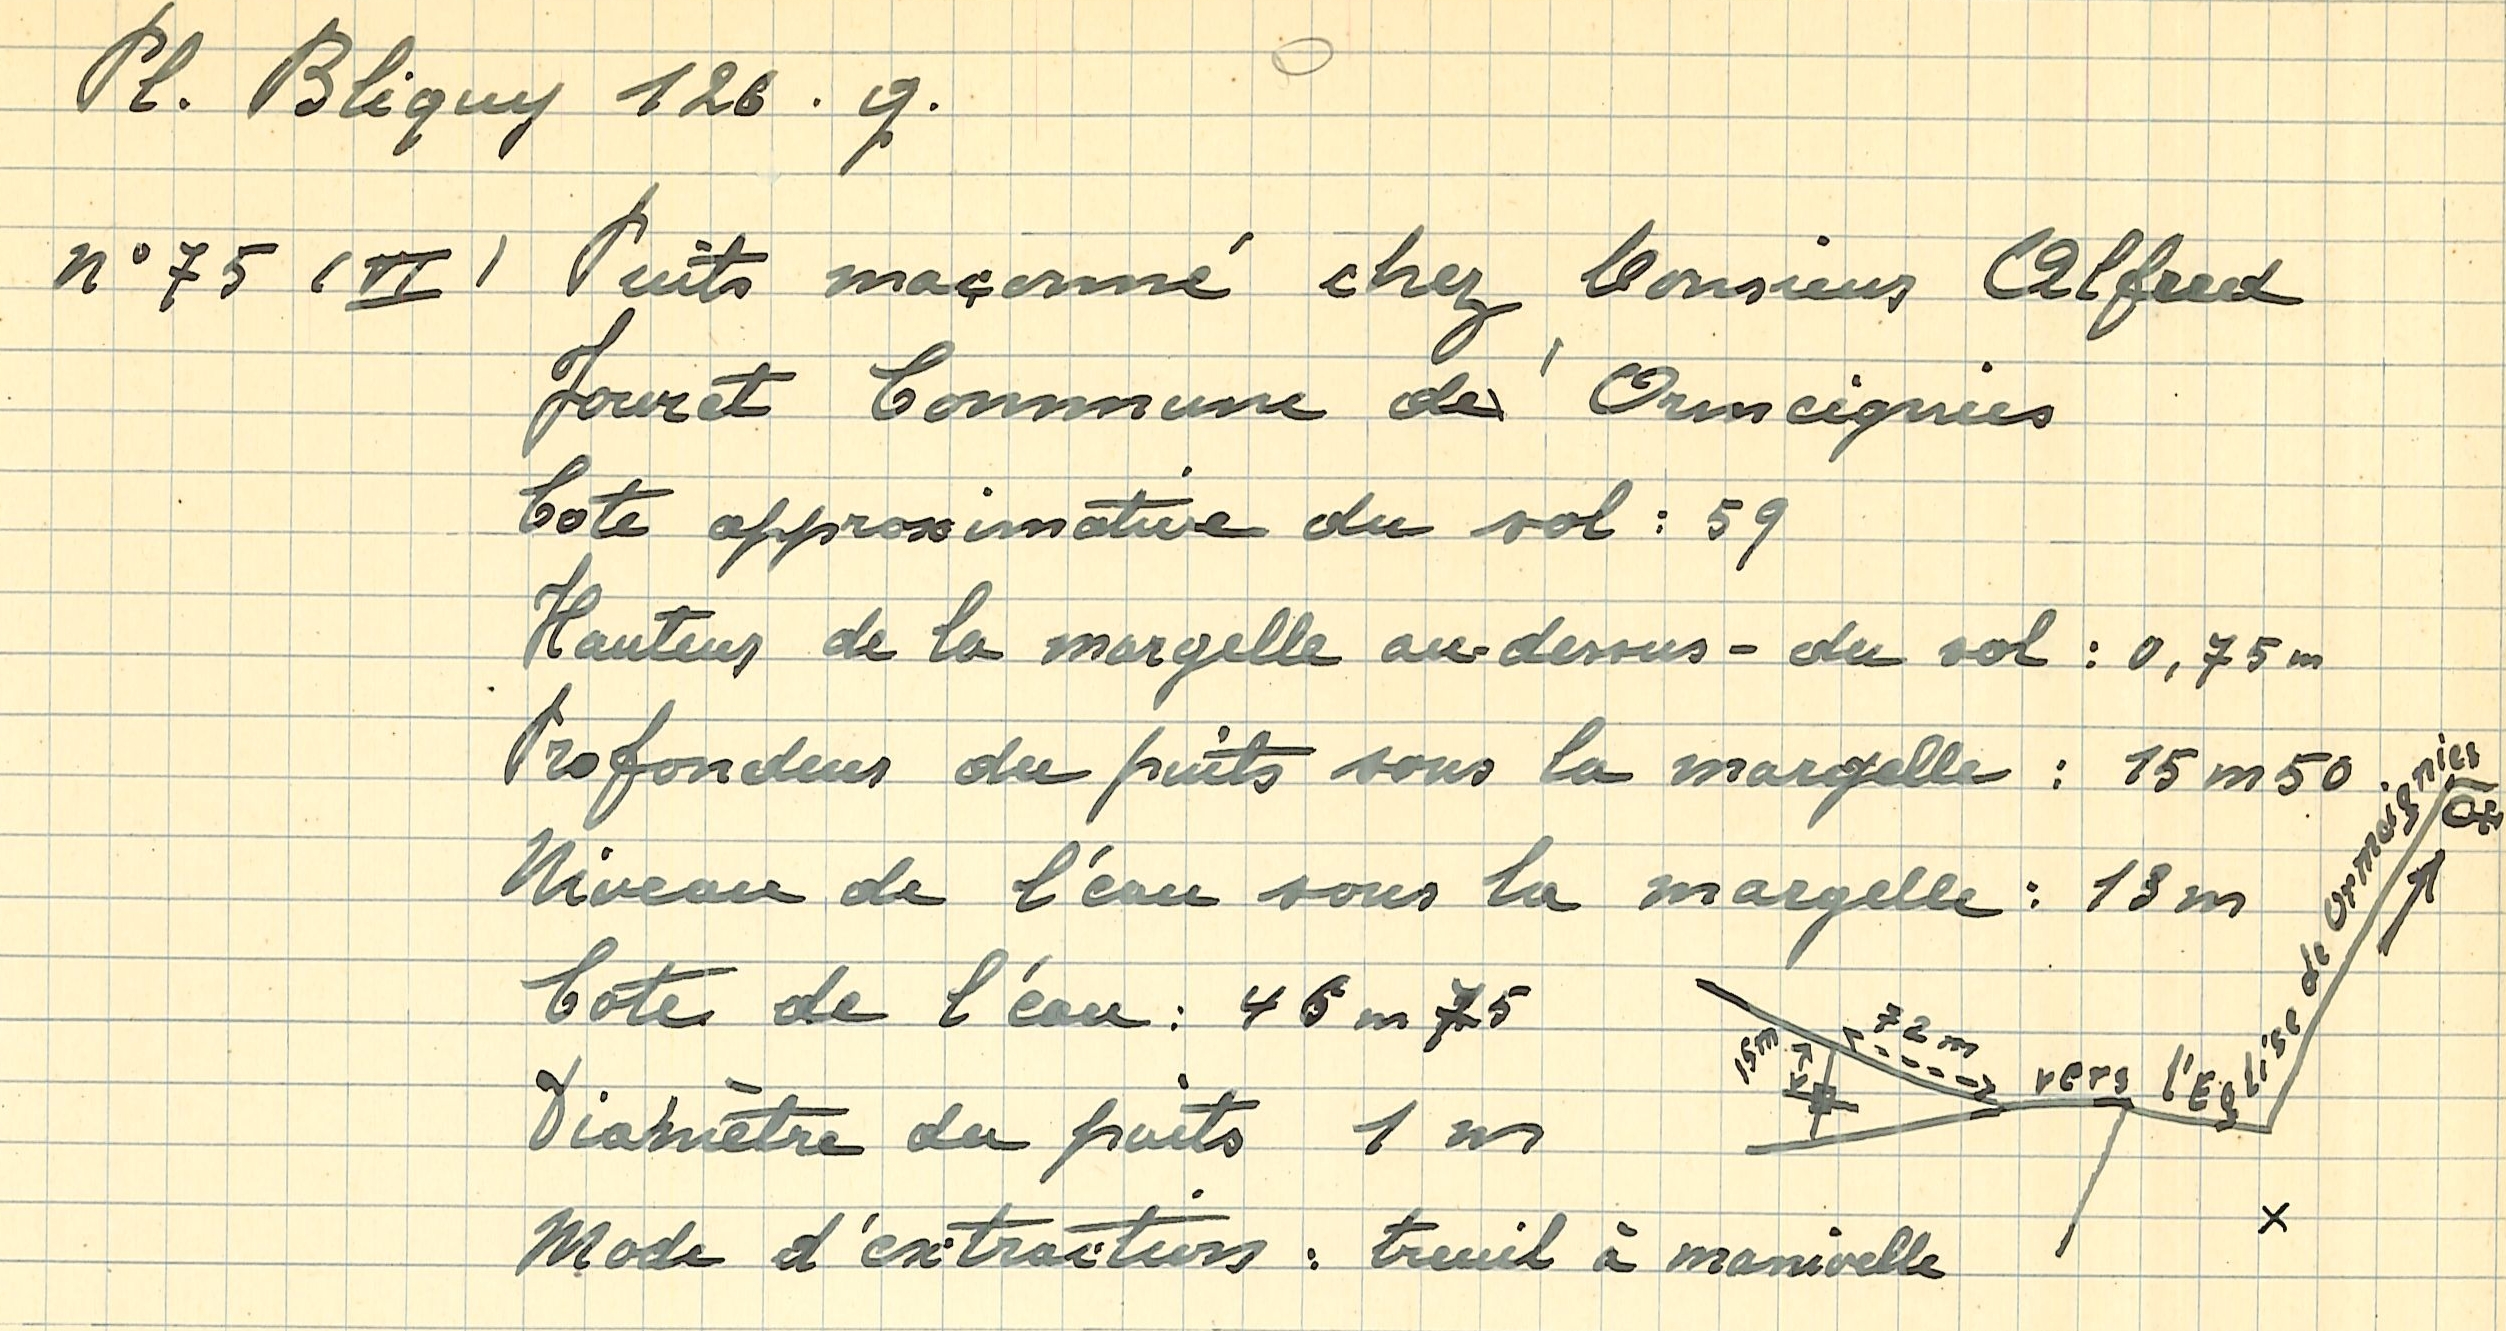 Pl. Bliquy 126. q.
n° 75 (VI) Puits maçonné chez Monsieur Alfred
Jouret Commune de' Ormeignies
Cote approximative du sol : 59
Hauteur de la margelle au-dessus-du sol : 0,75 m
Profondeur du puits sous la margelle : 15 m 50
Niveau de l'eau sous la margelle : 13 m
Cote de l'eau : 46 m 75
Diamètre du puits 1 m
Mode d'extraction : treuil à manivelle
15 m
72 m
vers l'Eglise de Ormeignies